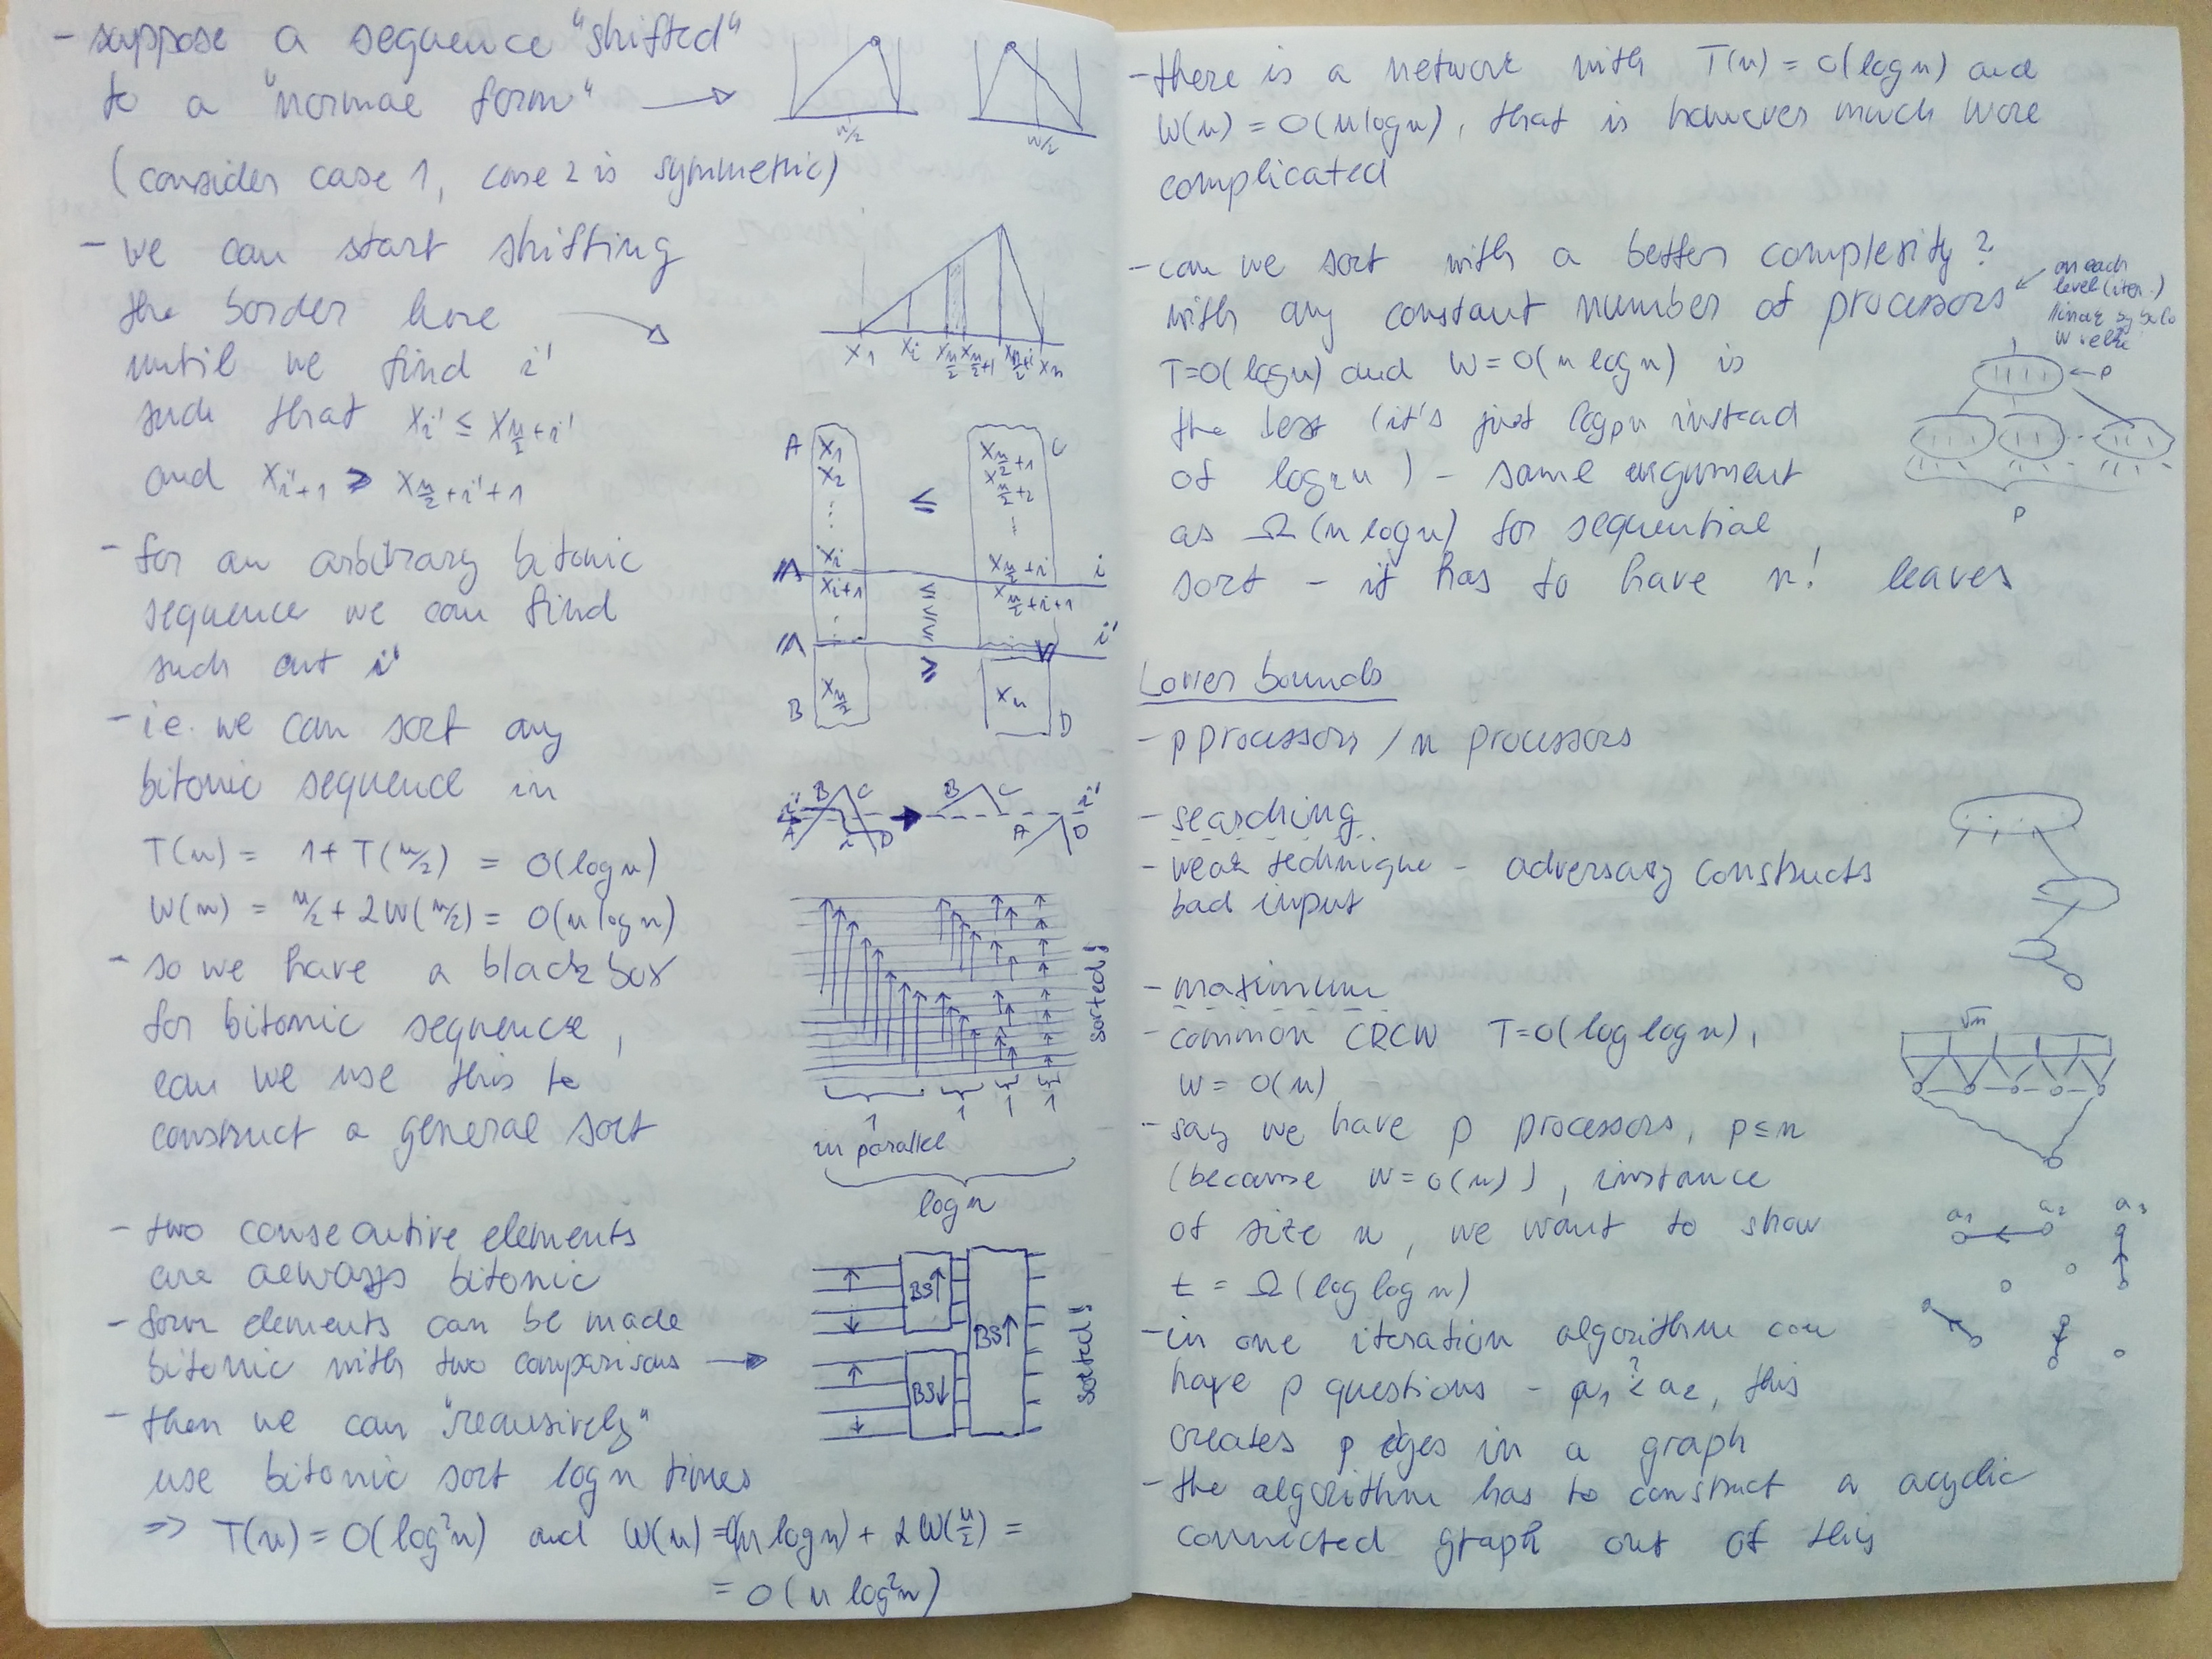 - suppose a sequence "shifted"
to a "normal form" →
n/2
n/2
(consider case 1, case 2 is symmetric)
- we can start shifting
the border here
until we find i'
such that xi' ≤ xn/2+i'
and xi'+1 ≥ xn/2+i'+1
x1 xi xn/2 xn/2+1 xn/2+i xn
- for an arbitrary bitonic
sequence we can find
such an i'
A x1 xn/2+1 C
x2 ≤ xn/2+2
⋮ ⋮
xi xn/2+i i
xi+1 ≤ xn/2+i+1
i'
≥
B xn/2 xn D
- i.e. we can sort any
bitonic sequence in
T(n) = 1 + T(n/2) = O(log n)
W(n) = n/2 + 2W(n/2) = O(n log n)
i' B C → B C i'
A i D A D
- so we have a black box
for bitonic sequence,
can we use this to
construct a general sort
sorted!
1 1 1 1
in parallel
log n
- two consecutive elements
are always bitonic
- four elements can be made
bitonic with two comparisons →
- then we can "recursively"
use bitonic sort log n times
BS↑
BS↑
BS↓
sorted!
⇒ T(n) = O(log²n) and W(n) = O(n log n) + 2W(n/2) =
= O(n log²n)
- there is a network with T(n) = O(log n) and
W(n) = O(n log n), that is however much more
complicated
- can we sort with a better complexity?
with any constant number of processors
T=O(log n) and W=O(n log n) is
the best (it's just logpn instead
of log2n) - same argument
as Ω(n log n) for sequential
sort - it has to have n! leaves
on each
level (iter.)
← p
p
Lower bounds
- p processors / n processors
- searching
- weak technique - adversary constructs
bad input
- maximum
- common CRCW T=O(log log n),
W = O(n)
√n
- say we have p processors, p≤n
(because W=O(n)), instance
of size n, we want to show
t = Ω(log log n)
a1 a2 a3
- in one iteration algorithm can
have p questions - a1 ?< a2, this
creates p edges in a graph
- the algorithm has to construct a acyclic
connected graph out of this